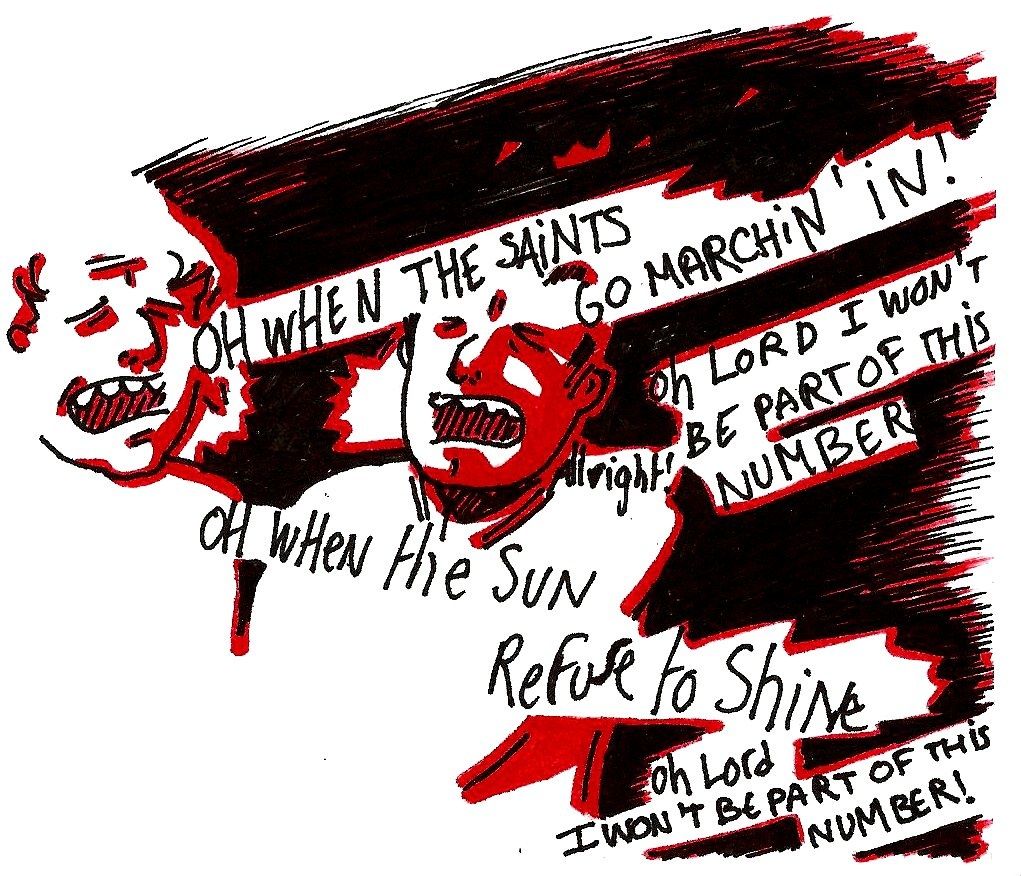 OH WHEN THE SAINTS
GO MARCHIN' IN!
oh LORD I WON'T
BE PART OF THIS
NUMBER
Allright!
OH WHEN the SUN
Refuse to Shine
oh Lord
I WON'T BE PART OF THIS
NUMBER!